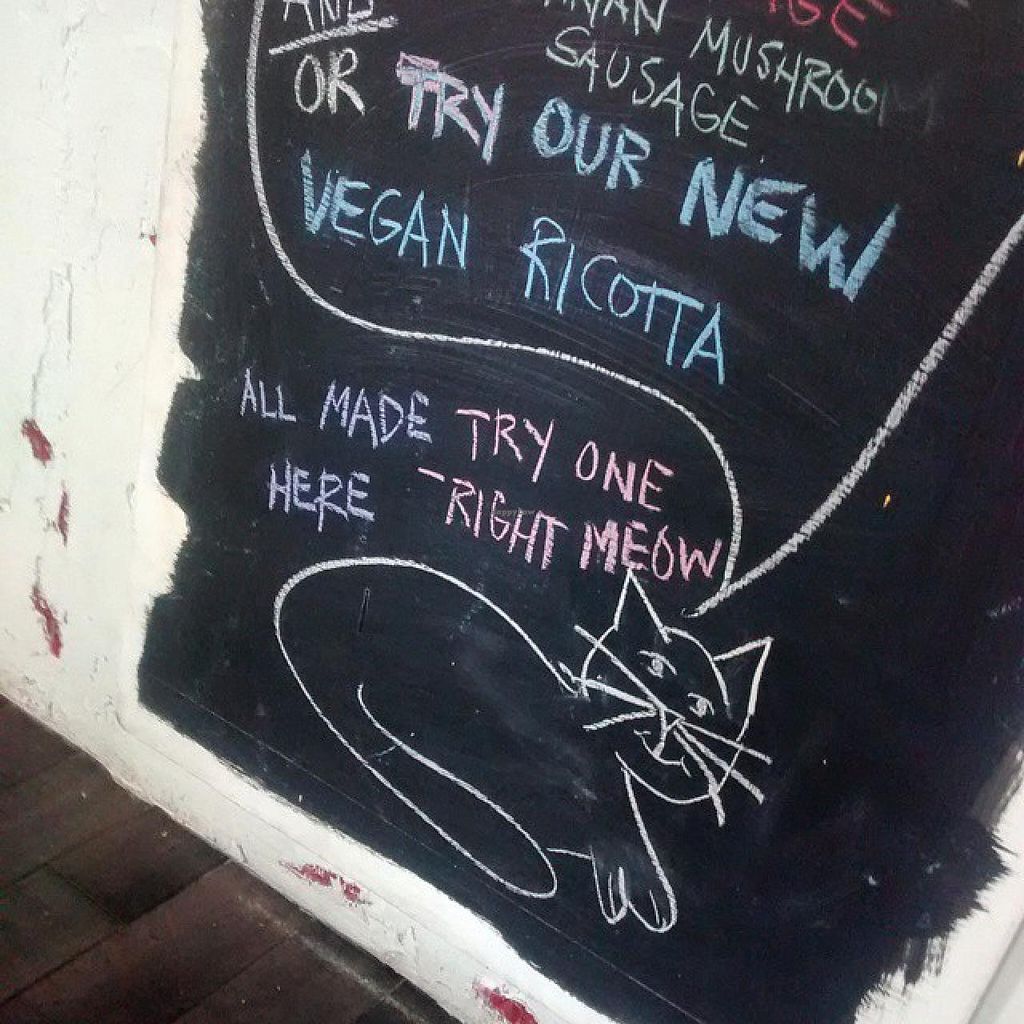 AND
MUSHROOM
SAUSAGE
OR TRY OUR NEW
VEGAN RICOTTA
ALL MADE
HERE
TRY ONE
RIGHT MEOW
happycow